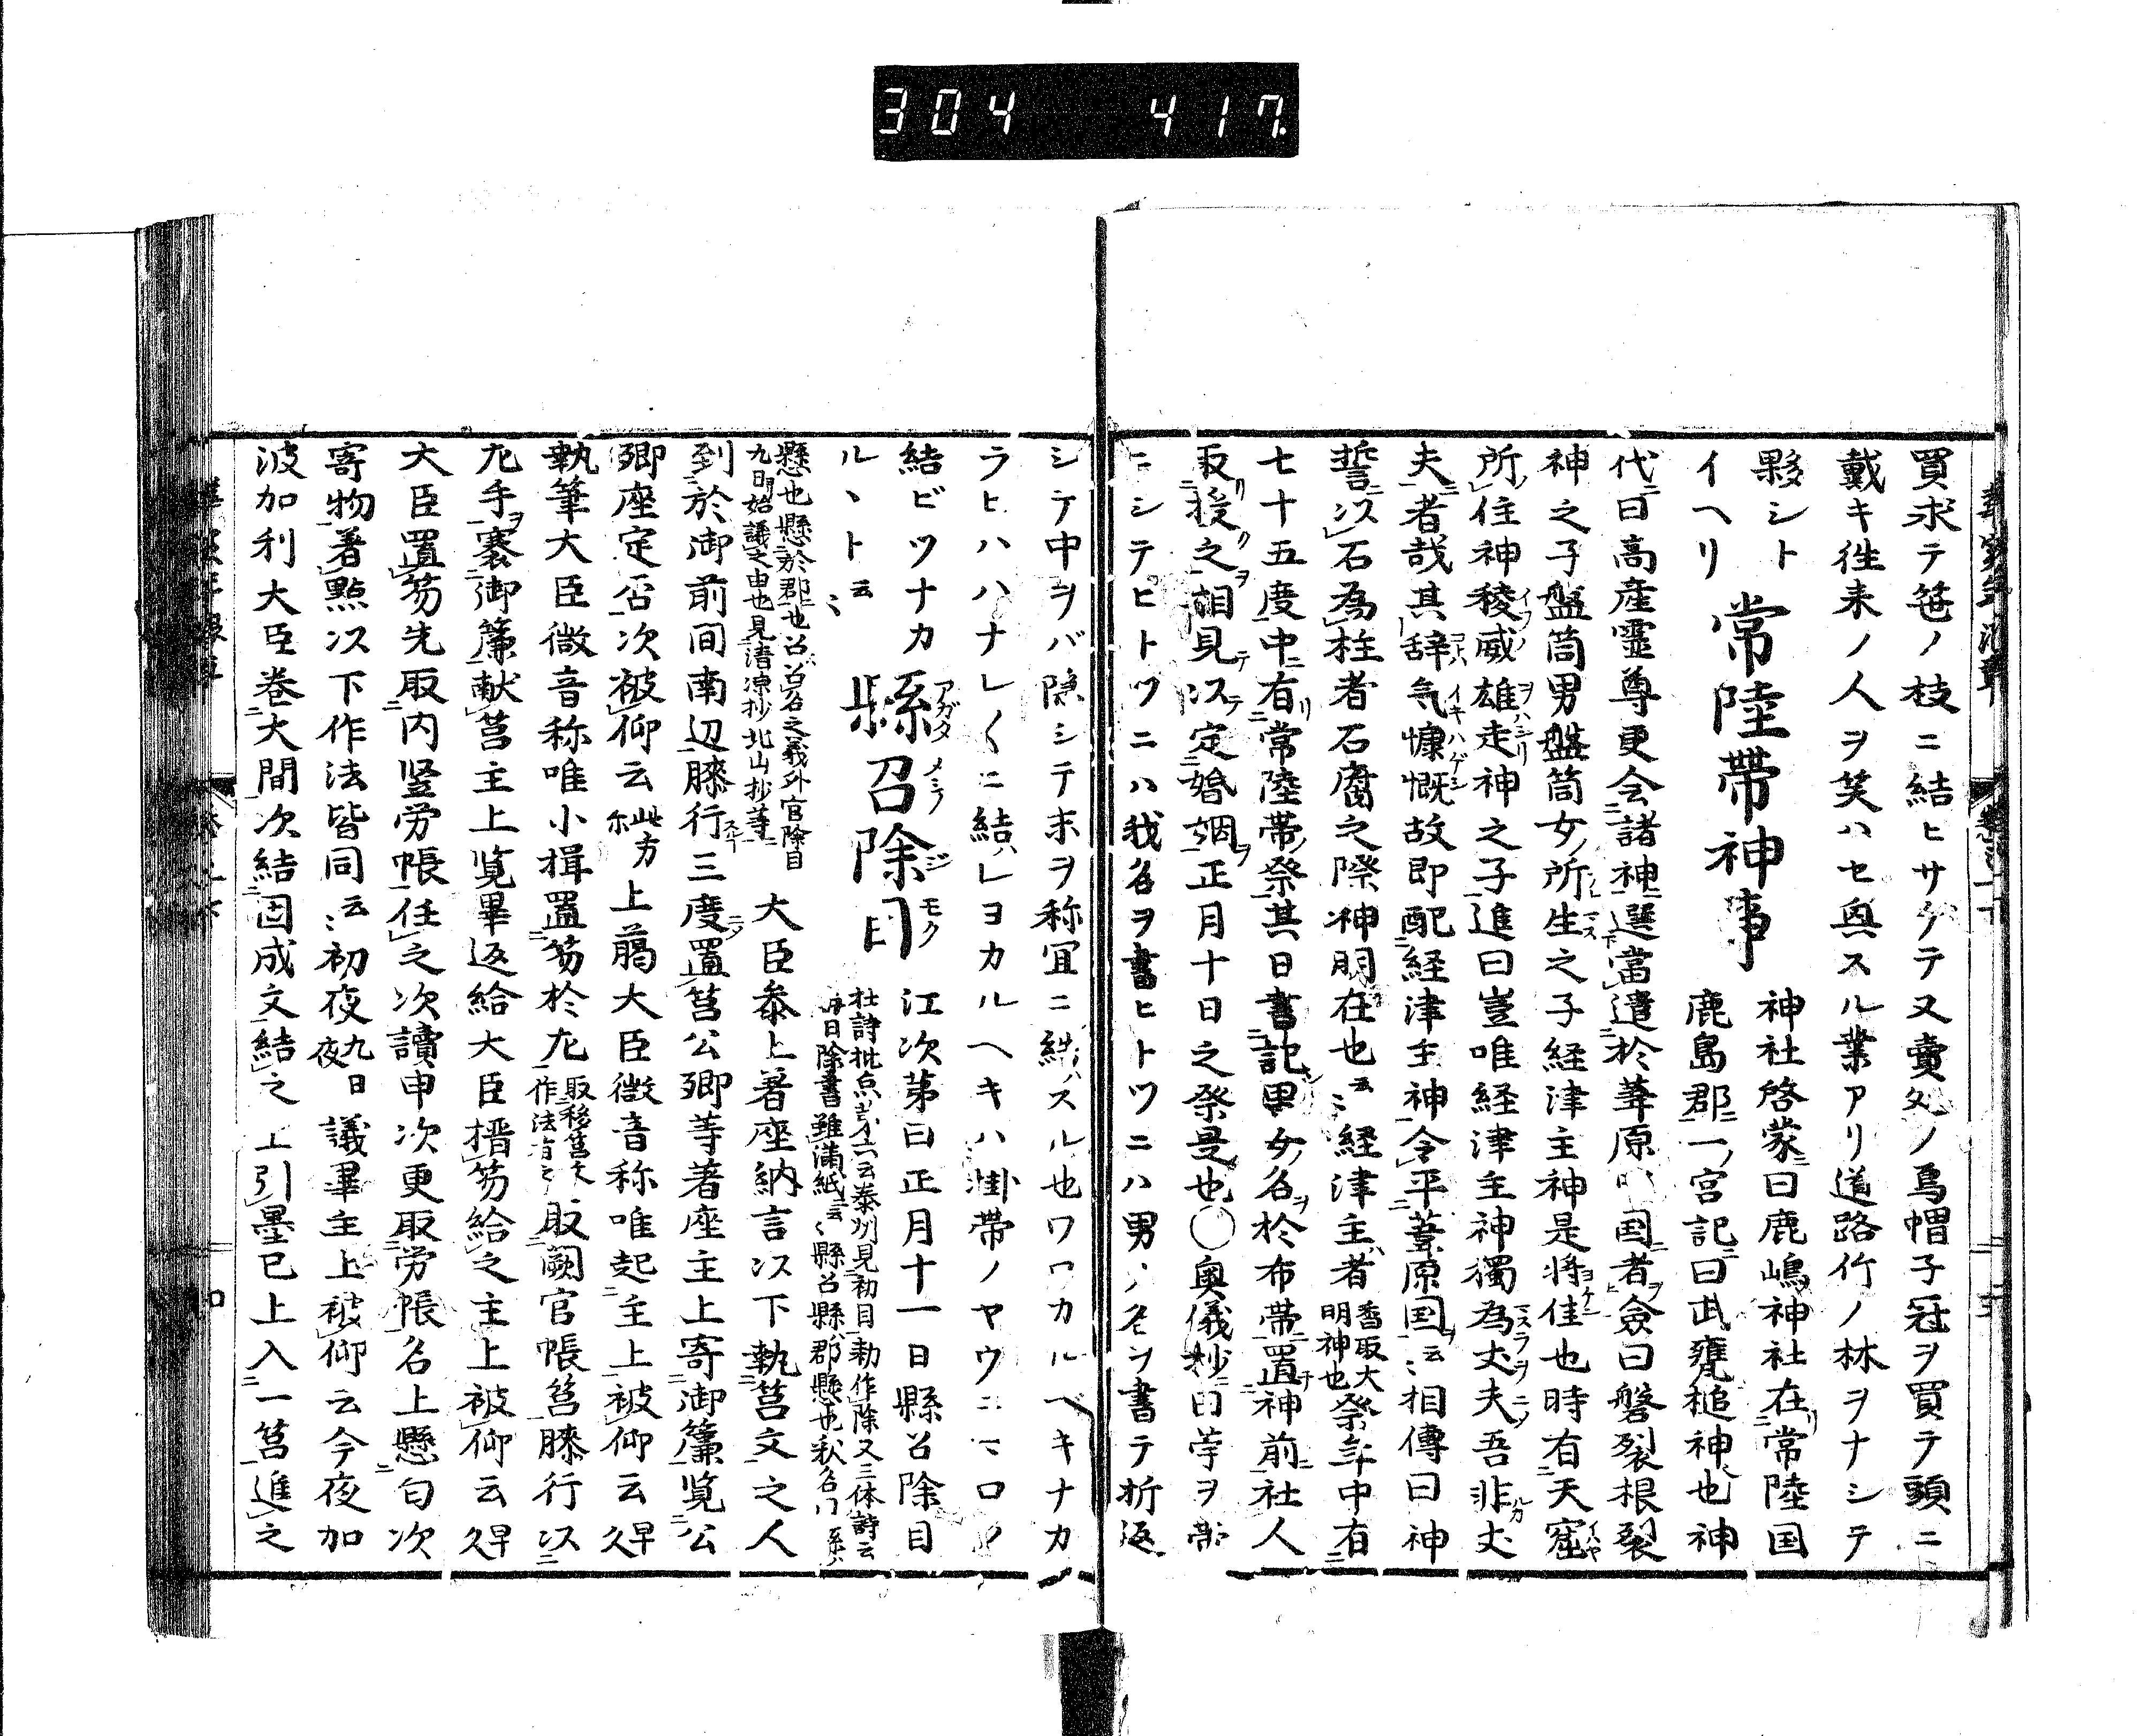 304 417.
買求テ笹ノ枝ニ結ヒサケテ又賣処ノ烏帽子冠ヲ買テ頭ニ
戴キ徃来ノ人ヲ笑ハセ與スル業アリ道路竹ノ林ヲナシテ
夥シト
イヘリ
常陸帶神事
神社啓蒙曰鹿嶋神社在常陸国
鹿島郡一宮記曰武甕槌神也神
代曰高産靈尊更会諸神選當遣於葦原国者僉曰磐裂根裂
神之子盤筒男盤筒女所生之子経津主神是将佳也時有天窟
所住神稜威雄走神之子進曰豈唯経津主神獨為丈夫吾非丈
夫者哉其辞気慷慨故即配経津主神令平葦原国云〻相傳曰神
誓以石為柱者石腐之際神明在也云〻経津主者香取大明神也祭年中有
七十五度中有常陸帶祭其日書記男女名於布帶置神前社人
取授之相見以定婚姻正月十日之祭是也○奥儀抄曰苧ヲ帶
ニシテヒトツニハ我名ヲ書ヒトツニハ男ノ名ヲ書テ折返
シテ中ヲバ隠シテ末ヲ称宜ニ結ハスル也ワロカルベキナカ
ラヒハハナレ〱ニ結ハレヨカルヘキハ掛帶ノヤウニマロノ
結ビツナカ
ルヽト云〻
縣召除目
アガタメシノジモク
江次第曰正月十一日縣召除目
杜詩批点第六云泰州見初目勅作除又三体詩云
毎日除書雖滿紙云〻縣召縣ハ郡縣也秋召ハ
懸也縣於郡也召ハ召名之義外官除目
九日始議之由也見清凉抄北山抄等
大臣参上著座納言以下執筥文之人
到於御前間南辺膝行三度置筥公卿等著座主上寄御簾覧公
卿座定否次被仰云此方尓上臈大臣微音称唯起主上被仰云早久
執筆大臣微音称唯小揖置笏於左取移筥文作法有之取闕官帳筥膝行以
左手褰御簾献筥主上覧畢返給大臣搢笏給之主上被仰云早久
大臣置笏先取内竪労帳任之次讀申次更取労帳名上懸勾次
寄物著點以下作法皆同云〻初夜九日夜議畢主上被仰云今夜加
波加利大臣巻大間次結固成文結之上引墨已上入一筥進之